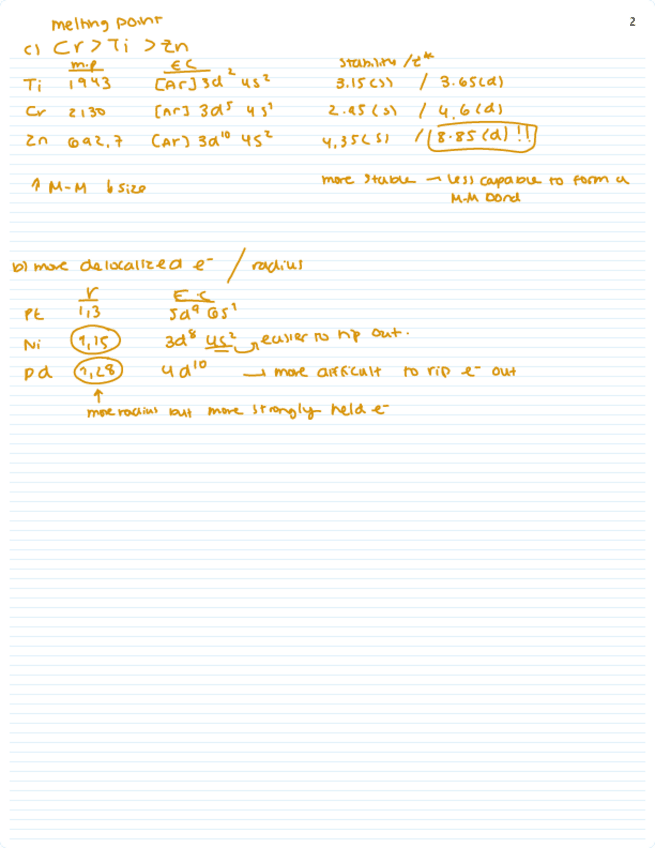 2
melting point
c) Cr > Ti > Zn
m.p EC Stability / z*
Ti 1943 [Ar] 3d² 4s² 3.15(s) / 3.65(d)
Cr 2130 [Ar] 3d⁵ 4s¹ 2.95(s) / 4,6(d)
Zn 692,7 [Ar] 3d¹⁰ 4s² 4,35(s) / 8.85(d)!!
↑ M-M ↓ size more stable → less capable to form a
M-M bond
b) more delocalized e⁻ / radius
r E.C
Pt 1,3 5d⁹ 6s¹
Ni 1,15 3d⁸ 4s² easier to rip out.
Pd 1,28 4d¹⁰ → more difficult to rip e⁻ out
↑
more radius but more strongly held e⁻